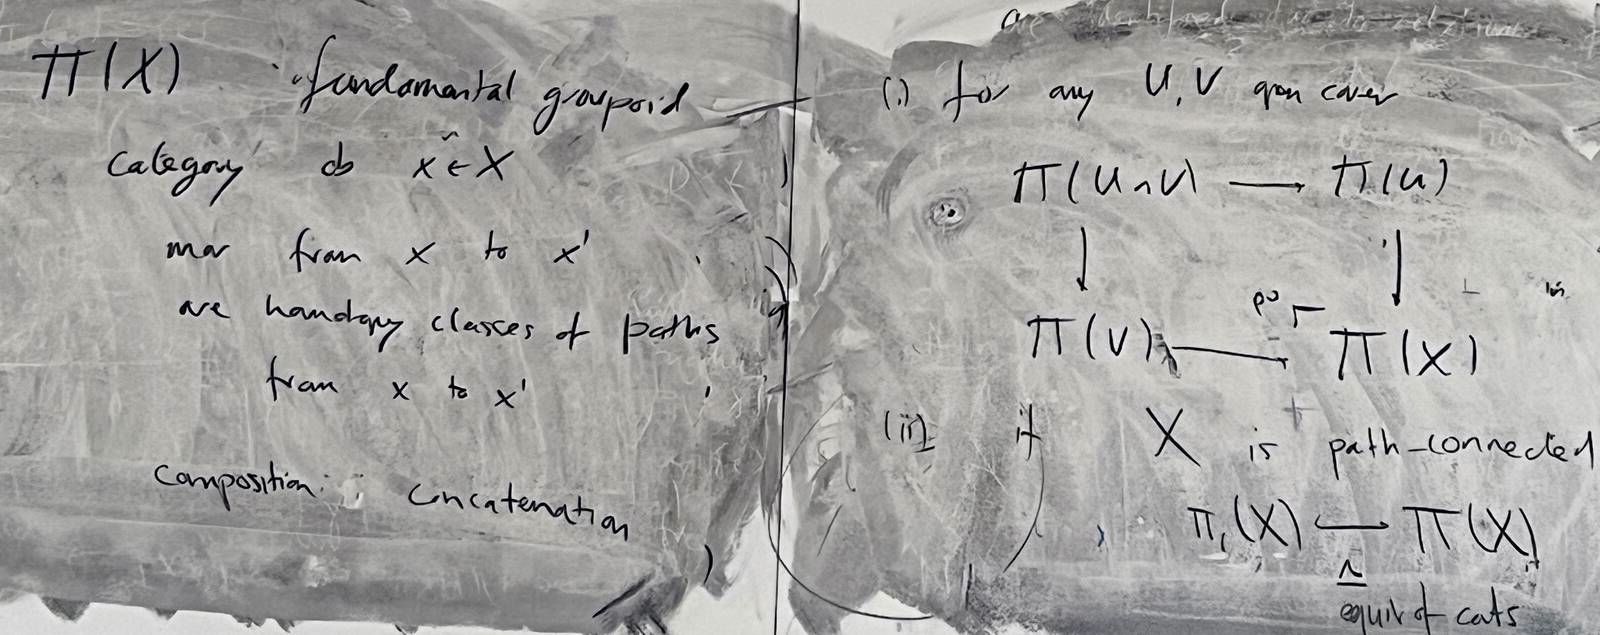 Π(X) fundamental groupoid
category ob x ∈ X
mor from x to x'
are homotopy classes of paths
from x to x'
composition: concatenation
(i) for any U, V open cover
Π(U∩V) → Π(U)
↓ ↓
po ⌜
Π(V) → Π(X)
(ii) if X is path-connected
π₁(X) ↪ Π(X)
≃
equiv of cats